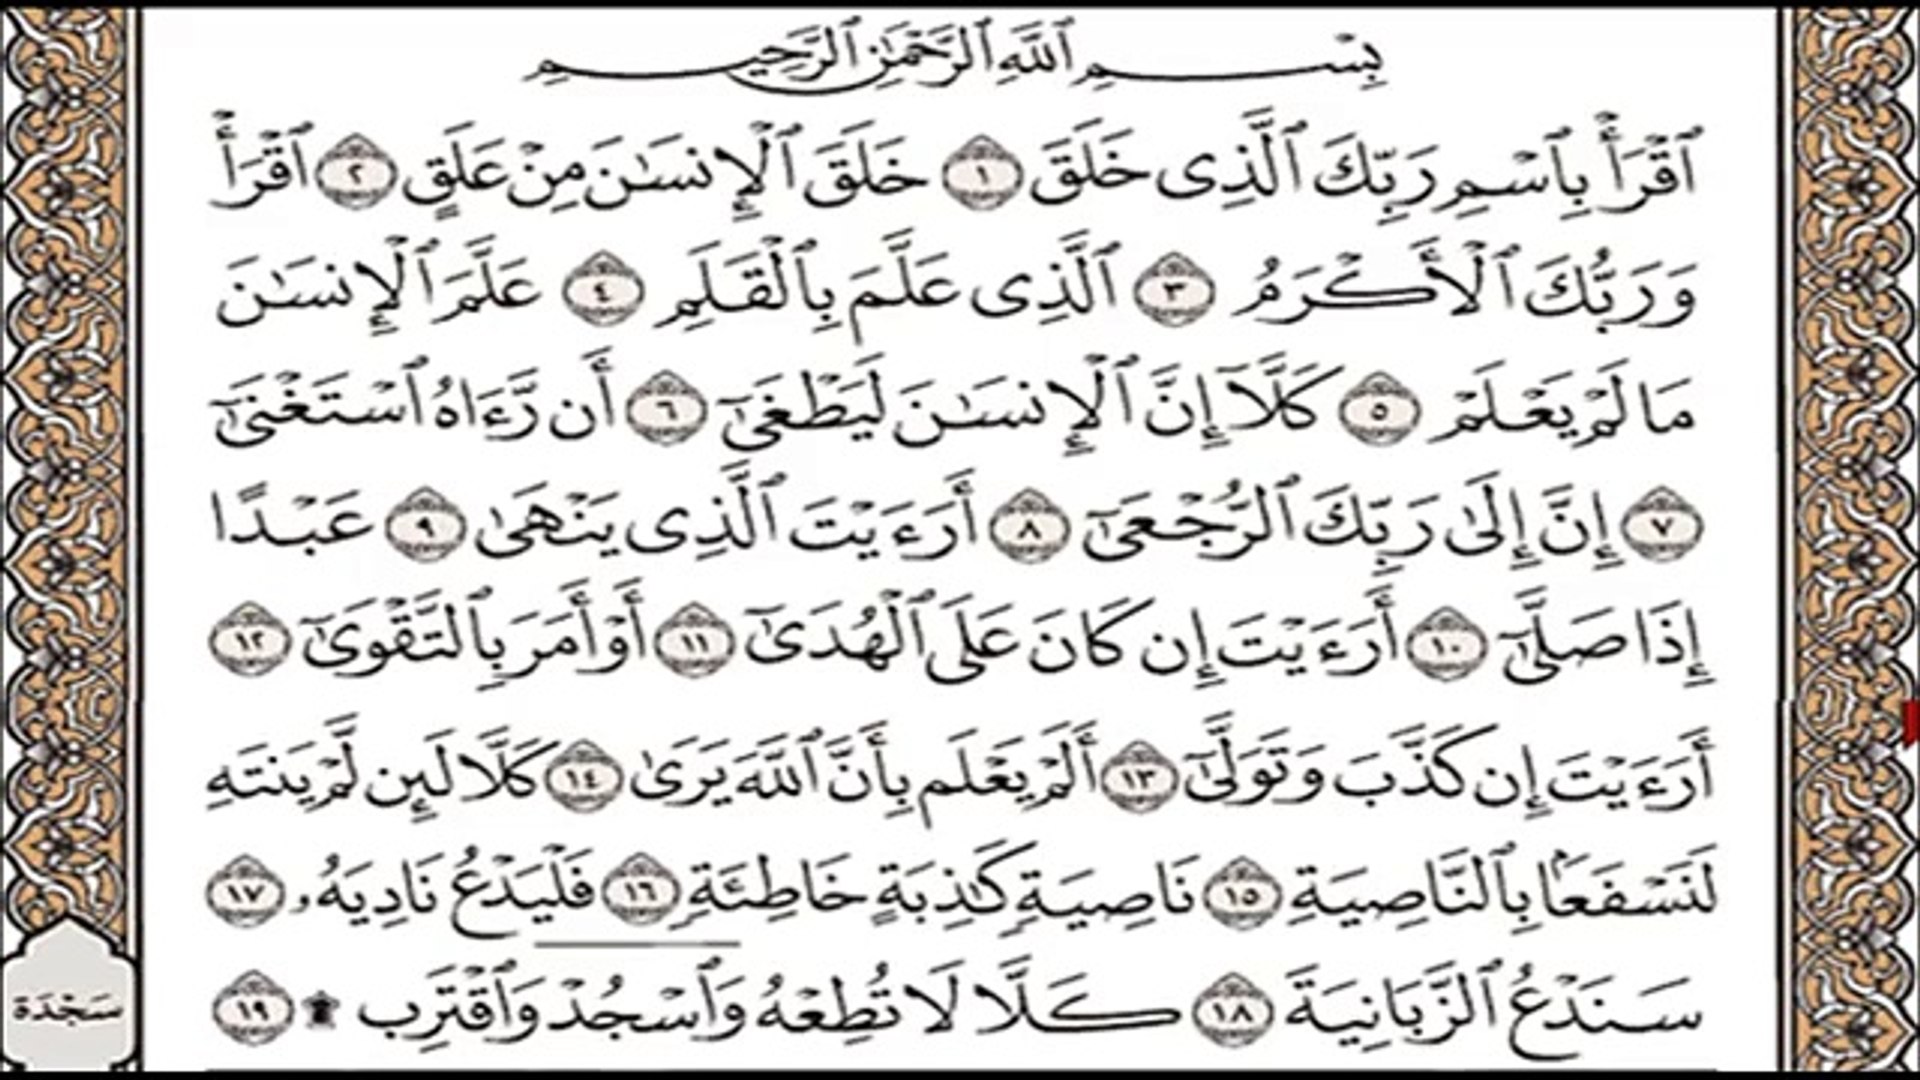 بِسْمِ ٱللَّهِ ٱلرَّحْمَٰنِ ٱلرَّحِيمِ
ٱقْرَأْ بِٱسْمِ رَبِّكَ ٱلَّذِى خَلَقَ ١ خَلَقَ ٱلْإِنسَٰنَ مِنْ عَلَقٍ ٢ ٱقْرَأْ
وَرَبُّكَ ٱلْأَكْرَمُ ٣ ٱلَّذِى عَلَّمَ بِٱلْقَلَمِ ٤ عَلَّمَ ٱلْإِنسَٰنَ
مَا لَمْ يَعْلَمْ ٥ كَلَّآ إِنَّ ٱلْإِنسَٰنَ لَيَطْغَىٰٓ ٦ أَن رَّءَاهُ ٱسْتَغْنَىٰٓ
٧ إِنَّ إِلَىٰ رَبِّكَ ٱلرُّجْعَىٰٓ ٨ أَرَءَيْتَ ٱلَّذِى يَنْهَىٰ ٩ عَبْدًا
إِذَا صَلَّىٰٓ ١٠ أَرَءَيْتَ إِن كَانَ عَلَى ٱلْهُدَىٰٓ ١١ أَوْ أَمَرَ بِٱلتَّقْوَىٰٓ ١٢
أَرَءَيْتَ إِن كَذَّبَ وَتَوَلَّىٰٓ ١٣ أَلَمْ يَعْلَم بِأَنَّ ٱللَّهَ يَرَىٰ ١٤ كَلَّا لَئِن لَّمْ يَنتَهِ
لَنَسْفَعًۢا بِٱلنَّاصِيَةِ ١٥ نَاصِيَةٍ كَٰذِبَةٍ خَاطِئَةٍ ١٦ فَلْيَدْعُ نَادِيَهُۥ ١٧
سَنَدْعُ ٱلزَّبَانِيَةَ ١٨ كَلَّا لَا تُطِعْهُ وَٱسْجُدْ وَٱقْتَرِب ۩ ١٩
سَجْدَة